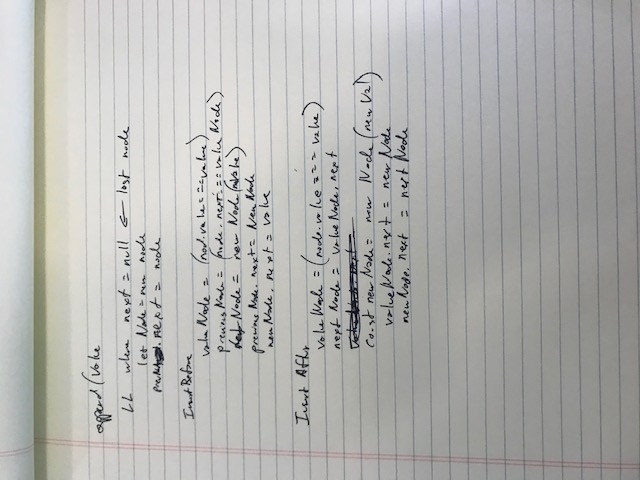 append (value
LL where next = null ← last node
let Node = new node
.next = node
Insert Before
value Node = (nod.value === value)
previous Node = (node.next === value Node)
Node = new Node (value)
previous Node.next = New Node
new Node.next = value
Insert After
value Node = (node.value === value)
next Node = value Node.next
const new Node = new Node (new Val)
value Node.next = new Node
new Node.next = next Node